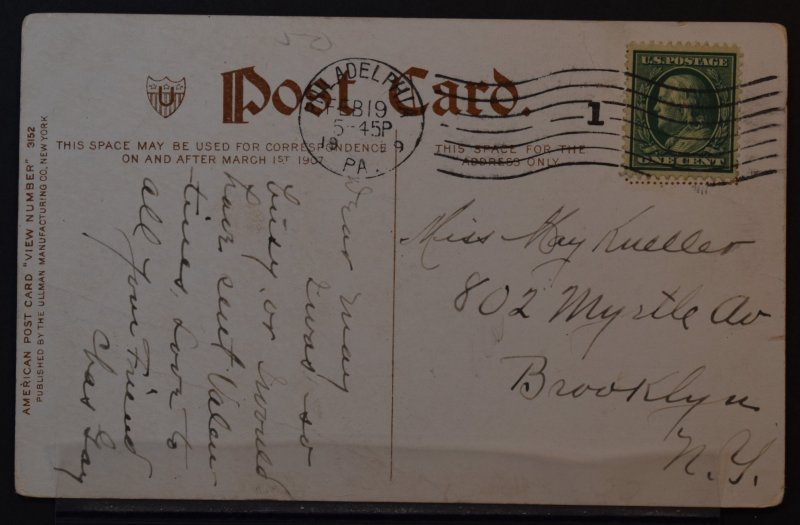 50
U
Post Card.
THIS SPACE MAY BE USED FOR CORRESPONDENCE
ON AND AFTER MARCH 1ST 1907
THIS SPACE FOR THE
ADDRESS ONLY
AMERICAN POST CARD "VIEW NUMBER" 3152
PUBLISHED BY THE ULLMAN MANUFACTURING CO. NEW YORK
PHILADELPHIA
FEB 19
5-45P
19 9
PA.
1
U.S. POSTAGE
ONE CENT
Dear May
I was so
busy, or I would
have sent Valen-
tines. Love to
all your Friend
Chas
Miss May Kueller
802 Myrtle Av
Brooklyn
N.Y.